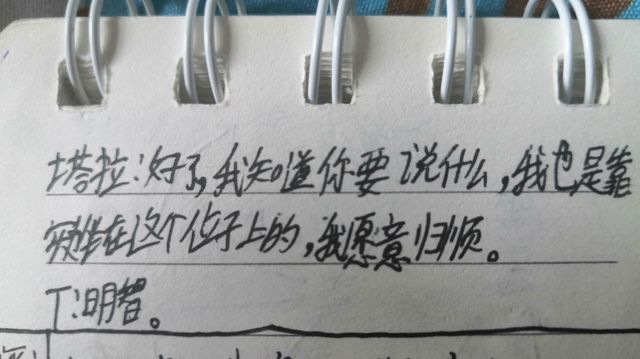 塔拉:好了,我知道你要说什么,我也是靠
坐在这个位子上的,我愿意归顺。
T:明智。